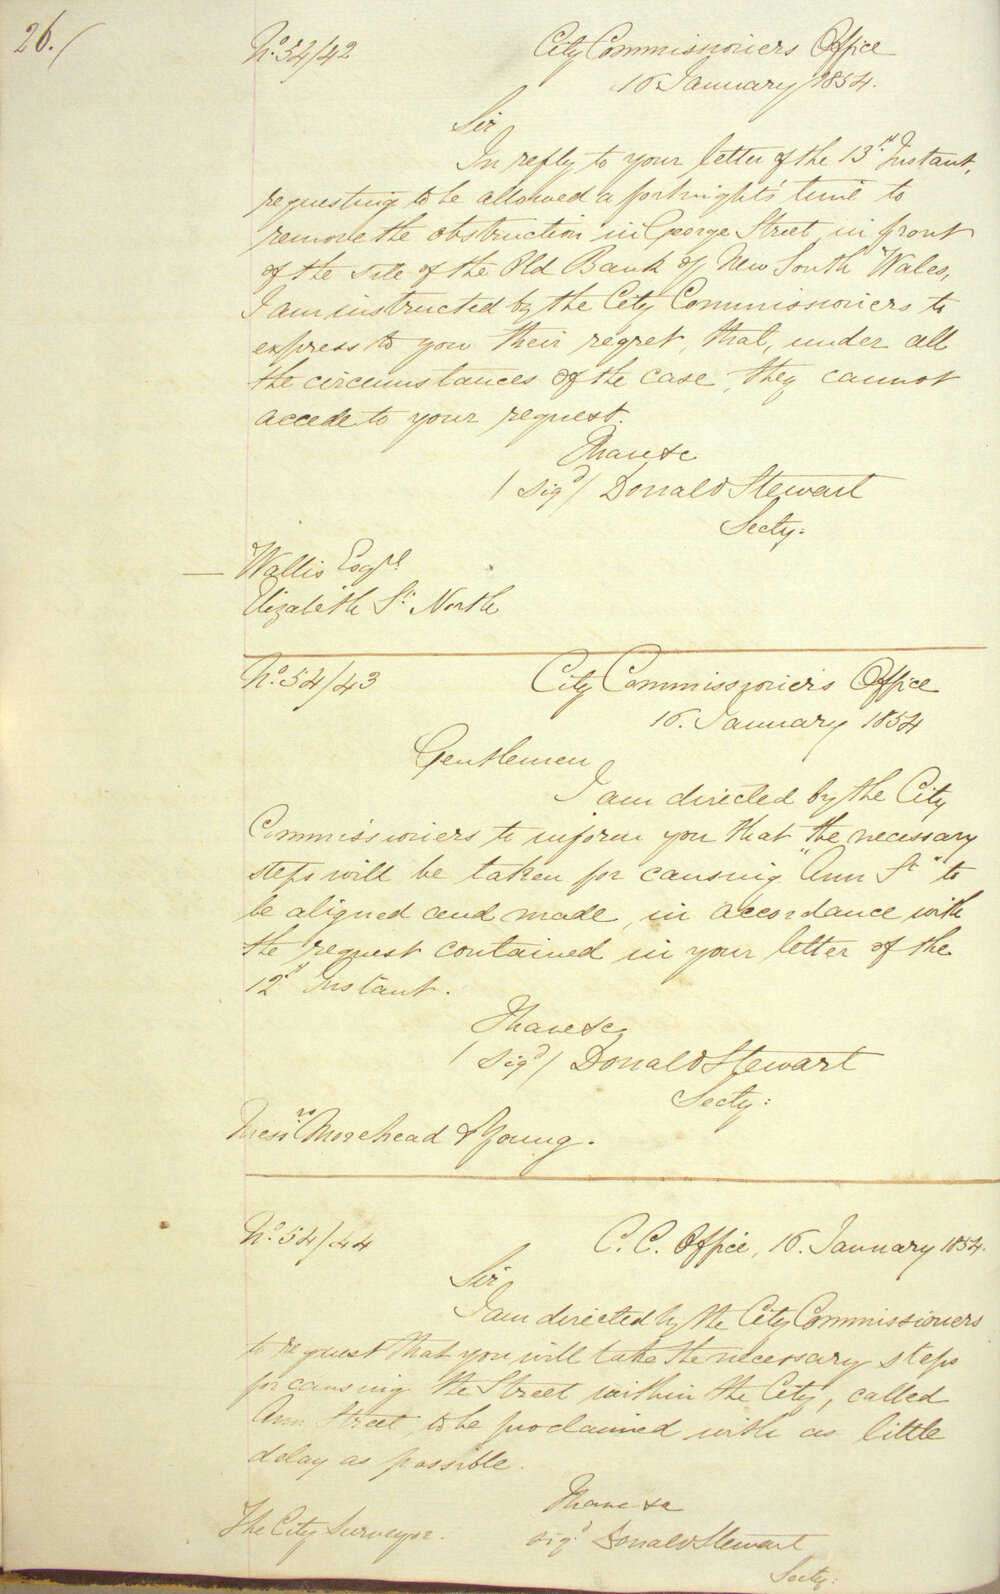 26./
No. 54/42 City Commissioners Office
16 January 1854.
Sir
In reply to your letter of the 13th Instant,
requesting to be allowed a fortnights' time to
remove the obstruction in George Street, in front
of the site of the Old Bank of New South Wales,
I am instructed by the City Commissioners to
express to you their regret, that, under all
the circumstances of the case, they cannot
accede to your request.
I have &c
(sigd) Donald Stewart
Secty:
— Wallis Esqre
Elizabeth St. North
No. 54/43 City Commissioners Office
16. January 1854
Gentlemen
I am directed by the City
Commissioners to inform you that the necessary
steps will be taken for causing "Ann St" to
be aligned and made, in accordance with
the request contained in your letter of the
12th Instant.
I have &c
(sigd) Donald Stewart
Secty:
Messrs Morehead & Young.
No. 54/44 C. C. Office, 16. January 1854.
Sir
I am directed by the City Commissioners
to request that you will take the necessary steps
for causing the Street within the City, called
Ann Street, to be proclaimed with as little
delay as possible.
I have &c
The City Surveyor. sigd Donald Stewart
Secty: